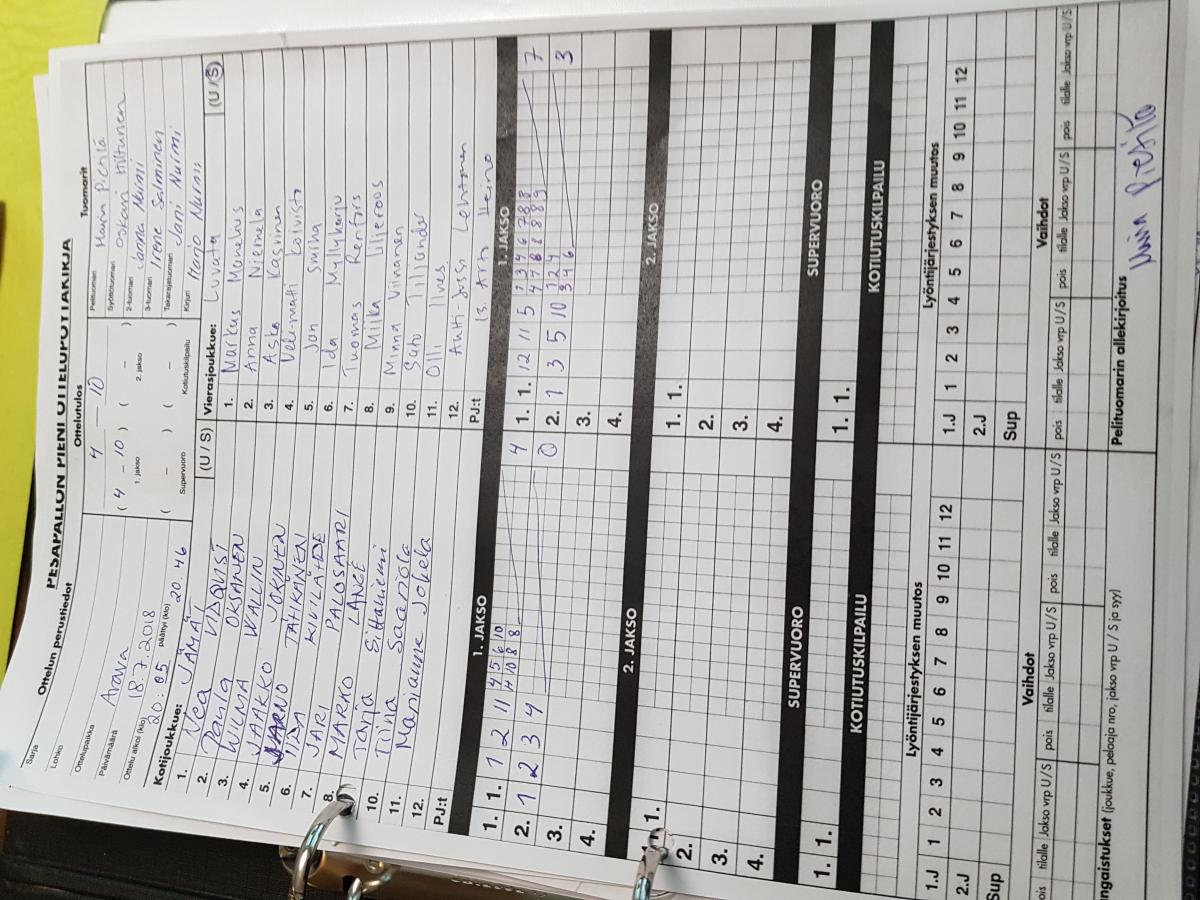 PESÄPALLON PIENI OTTELUPÖYTÄKIRJA
Ottelun perustiedot
Ottelutulos
Tuomarit
Sarja
Lohko
Ottelupaikka Arava
Päivämäärä 18.7.2018
Ottelu alkoi (klo) 20:05 päättyi (klo) 20.46
4 – 10
( 4 – 10 ) ( – )
1. jakso 2. jakso
( – ) ( – )
Supervuoro Kotiutuskilpailu
Pelituomari Harri Pietilä
Syöttötuomari Oskari Hiltunen
2-tuomari Sanna Nurmi
3-tuomari Irene Salminen
Takarajatuomari Jani Nurmi
Kirjuri Marjo Nurmi
Kotijoukkue: JÄMÄT (U / S)
1. Nea VIDQVIST
2. Paula OKSANEN
3. WILMA WALLIN
4. JAAKKO JOKINEN
5. JARNO TAHKÄNEN
6. IIDA KIVILÄHDE
7. JARI PALOSAARI
8. MARKO LANGE
Tanja Siltaniemi
10. Tiina Saariola
11. Marianne Jokela
12.
PJ:t
Vierasjoukkue: Luvata (U / S)
1. Markus Manelus
2. Anna Niemelä
3. Asko Kasvinen
4. Veli-Matti Koivisto
5. Jan Smiha
6. Ida Myllyharju
7. Tuomas Renfors
8. Milka Uljeroos
9. Minna Viinanen
10. Satu Tilliander
11. Olli Ilves
12. Antti-Jussi Lehtonen
PJ:t 13. Arto Heino
1. JAKSO
1. JAKSO
1. 1. 1 2 11 4 5 6 10 4
4 10 8 8
2. 1 2 3 4 0
3.
4.
1. 1. 12 11 5 1 3 4 6 7 8 8 7
4 7 6 8 8 8 9
2. 1 3 5 10 1 2 4 3
3 4 6
3.
4.
2. JAKSO
2. JAKSO
1. 1.
2.
3.
4.
1. 1.
2.
3.
4.
SUPERVUORO
SUPERVUORO
1. 1.
1. 1.
KOTIUTUSKILPAILU
KOTIUTUSKILPAILU
Lyöntijärjestyksen muutos
Lyöntijärjestyksen muutos
1.J 1 2 3 4 5 6 7 8 9 10 11 12
2.J
Sup
1.J 1 2 3 4 5 6 7 8 9 10 11 12
2.J
Sup
Vaihdot
Vaihdot
pois tilalle Jakso vrp U/S pois tilalle Jakso vrp U/S pois tilalle Jakso vrp U/S
pois tilalle Jakso vrp U/S pois tilalle Jakso vrp U/S pois tilalle Jakso vrp U/S
Rangaistukset (joukkue, pelaaja nro, jakso vrp U / S ja syy)
Pelituomarin allekirjoitus